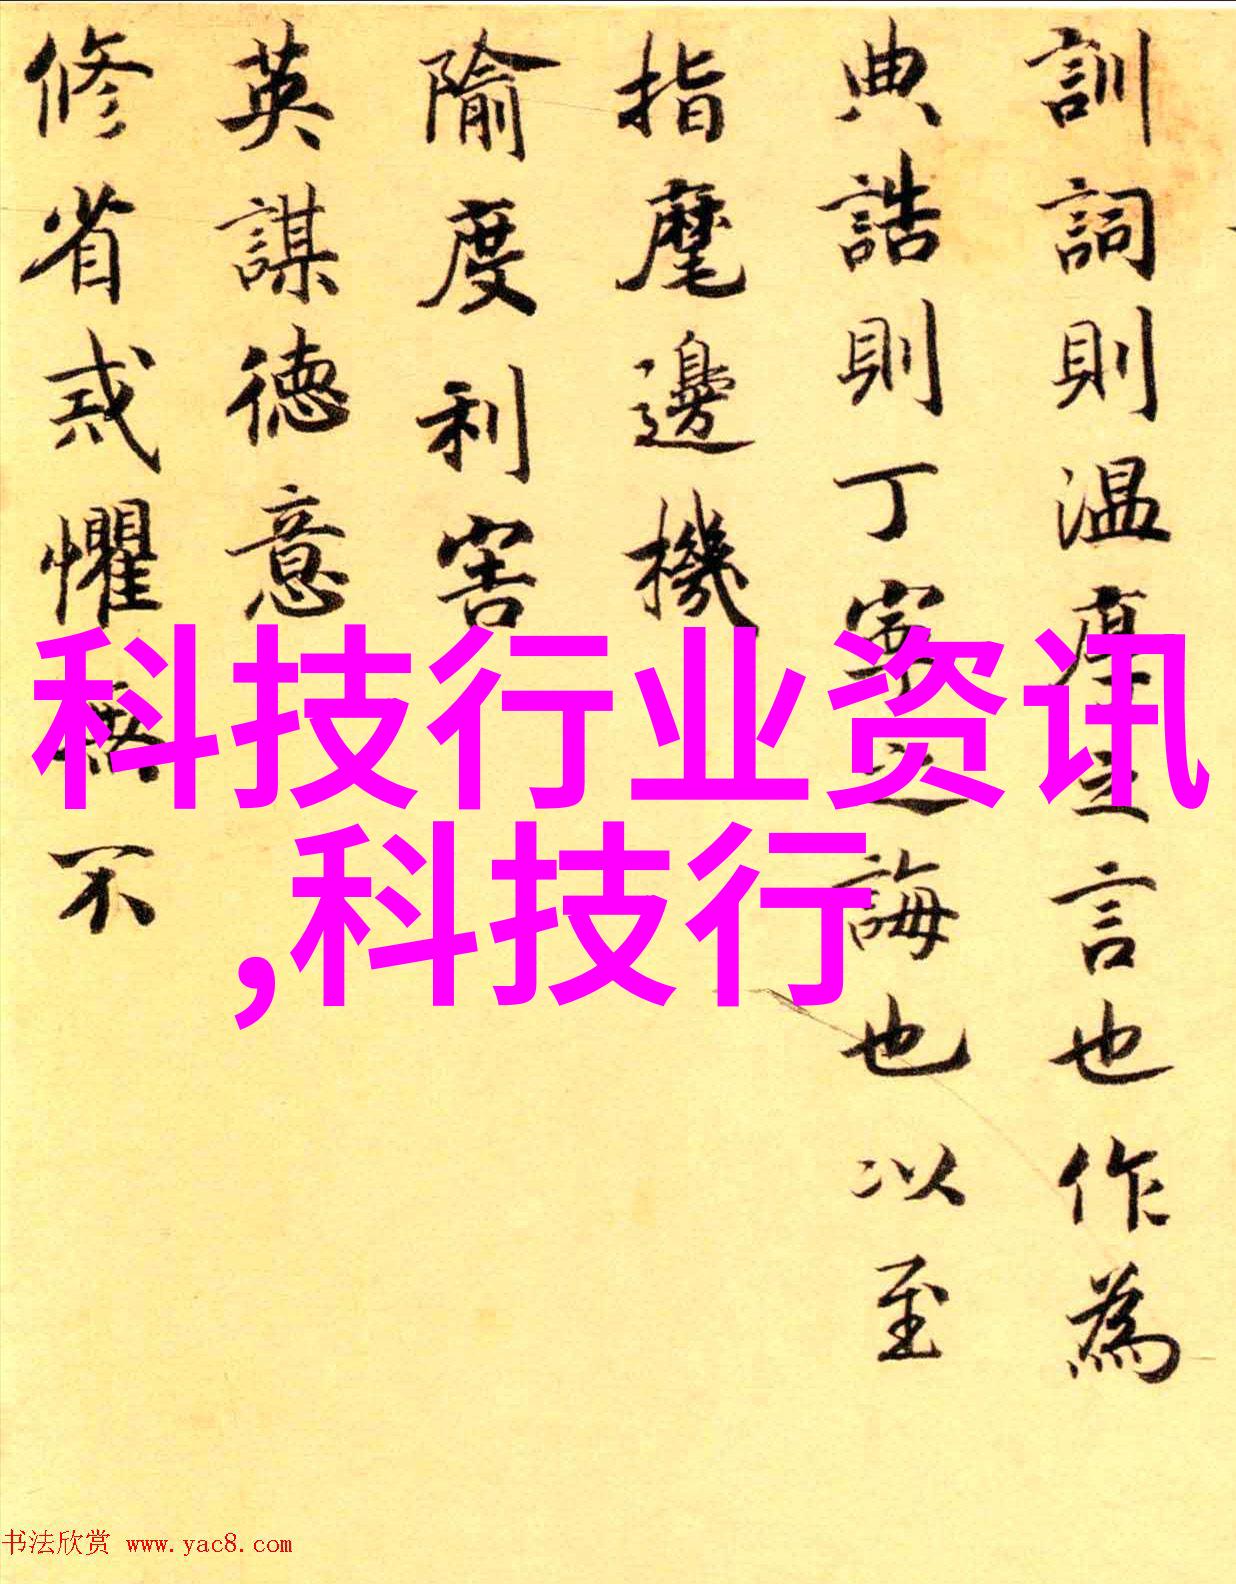 訓詞則温厚言也作為
典誥則丁寧之誨也以至
指麾邊機
隃度利害
英謀德意
修省戒懼無不
科技行业资讯
,科技行
书法欣赏 www.yac8.com